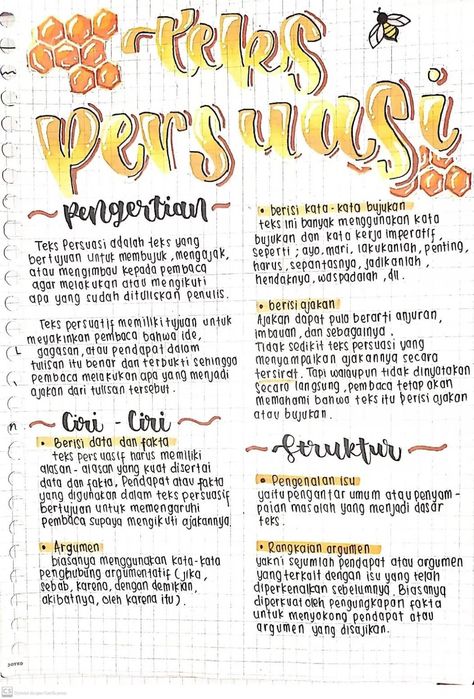 teks
persuasi
Pengertian
Teks Persuasi adalah teks yang
bertujuan untuk membujuk, mengajak,
atau mengimbau kepada pembaca
agar melakukan atau mengikuti
apa yang sudah dituliskan penulis.
Teks persuatif memiliki tujuan untuk
meyakinkan pembaca bahwa ide,
gagasan, atau pendapat dalam
tulisan itu benar dan terbukti sehingga
pembaca melakukan apa yang menjadi
ajakan dari tulisan tersebut.
Ciri - Ciri
• Berisi data dan fakta
teks persuasif harus memiliki
alasan - alasan yang kuat disertai
data dan fakta. Pendapat atau fakta
yang digunakan dalam teks persuasif
Bertujuan untuk memengaruhi
Pembaca supaya mengikuti ajakannya.
• Argumen
biasanya menggunakan kata-kata
penghubung argumentatif (jika,
sebab, karena, dengan demikian,
akibatnya, oleh karena itu).
• berisi kata-kata bujukan
teks ini banyak menggunakan kata
bujukan dan kata kerja imperatif,
seperti ; ayo, mari, lakukanlah, penting,
harus, sepantasnya, jadikanlah,
hendaknya, waspadalah, dll.
• berisi ajakan
Ajakan dapat pula berarti anjuran,
imbauan, dan sebagainya.
Tidak sedikit teks persuasi yang
menyampaikan ajakannya secara
tersirat. Tapi walaupun tidak dinyatakan
secara langsung, pembaca tetap akan
memahami bahwa teks itu berisi ajakan
atau bujukan.
Struktur
• Pengenalan isu
yaitu pengantar umum atau penyam-
paian masalah yang menjadi dasar
teks.
• Rangkaian argumen
yakni sejumlah pendapat atau argumen
yang terkait dengan isu yang telah
diperkenalkan sebelumnya. Biasanya
diperkuat oleh pengungkapan fakta
untuk menyokong pendapat atau
argumen yang disajikan.
JOYKO
CS